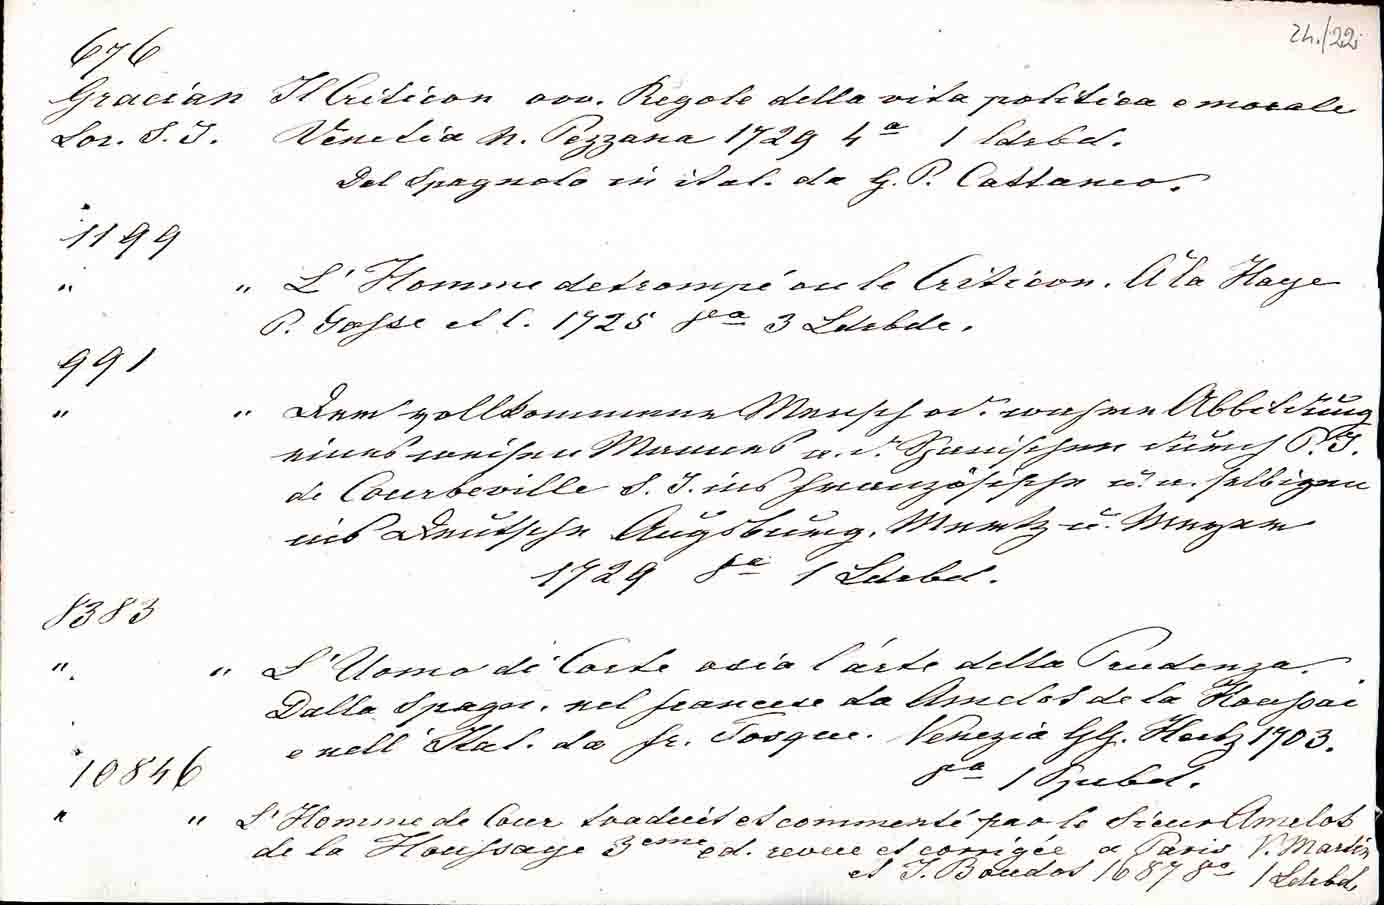 24./22.
676
Gracian Il Criticon ovv. Regole della vita politica e morale
Lor. S. J. Venetia N. Pezzana 1729 4ª 1 Ldrbd.
Dal Spagnolo in ital. da G. P. Cattaneo.
1199
" " L'Homme detrompé ou le Criticon. A la Haye
P. Gosse et C. 1725 8va 3 Ldrbde.
991
" " Der vollkommene Mensch od. wahre Abbildung
eines weisen Mannes a. d. Spanischen durch P. J.
de Courbeville S. J. ins französische u. a. selbigen
ins Deutsche Augsburg, Mertz u. Mayer
1729 8ª 1 Ldrbd.
8383
" " L'Uomo di Corte osia l'arte della Prudenza.
Dalla Spagn. nel francese da Amelot de la Houssai
e nell' Ital. da fr. Tosque. Venezia GG. Hertz 1703.
8ª 1 Hfrbd.
10846
" " L'Homme de Cour traduit et commenté par le Sieur Amelot
de la Houssaye 3eme ed. revue et corrigée a Paris V. Martin
et J. Boudot 1687 8vo 1 Ldrbd.